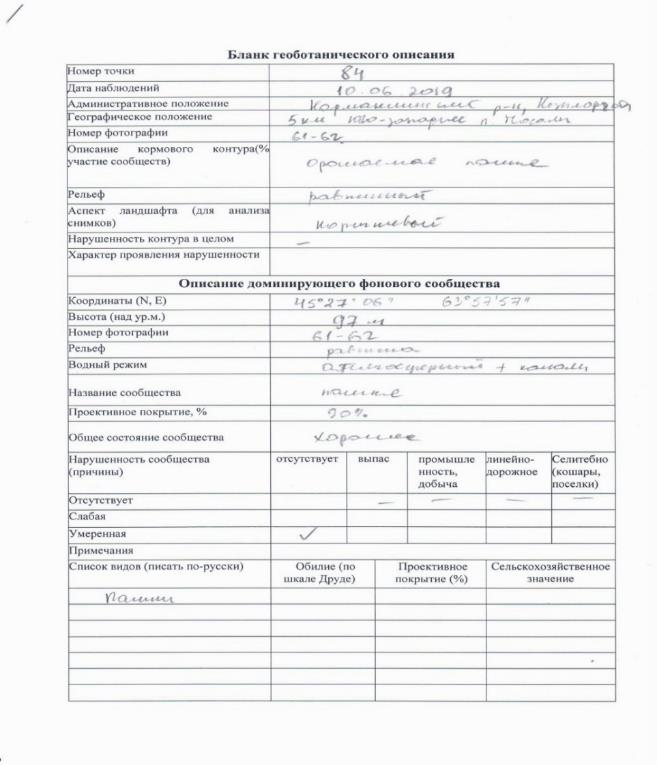 Бланк геоботанического описания
Номер точки 84
Дата наблюдений 10.06 2019
Административное положение Кармакшинский р-н, Кызылорда
Географическое положение 5 км юго-западнее п.
Номер фотографии 61-62
Описание кормового контура(%
участие сообществ) орошаемые пашне
Рельеф равнинный
Аспект ландшафта (для анализа
снимков) коричневый
Нарушенность контура в целом —
Характер проявления нарушенности
Описание доминирующего фонового сообщества
Координаты (N, E) 45°27' 06" 63°57'57"
Высота (над ур.м.) 97 м
Номер фотографии 61-62
Рельеф равнина
Водный режим атмосферный + каналы
Название сообщества пашне
Проективное покрытие, % 90%
Общее состояние сообщества хорошее
Нарушенность сообщества отсутствует выпас промышле линейно- Селитебно
(причины) нность, дорожное (кошары,
добыча поселки)
Отсутствует — — — —
Слабая
Умеренная ✓
Примечания
Список видов (писать по-русски) Обилие (по Проективное Сельскохозяйственное
шкале Друде) покрытие (%) значение
Пашни